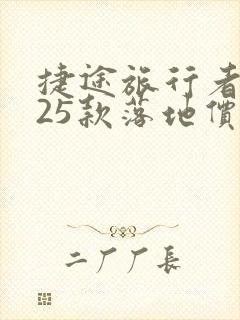 捷途旅行者
25款落地價
二厂厂長